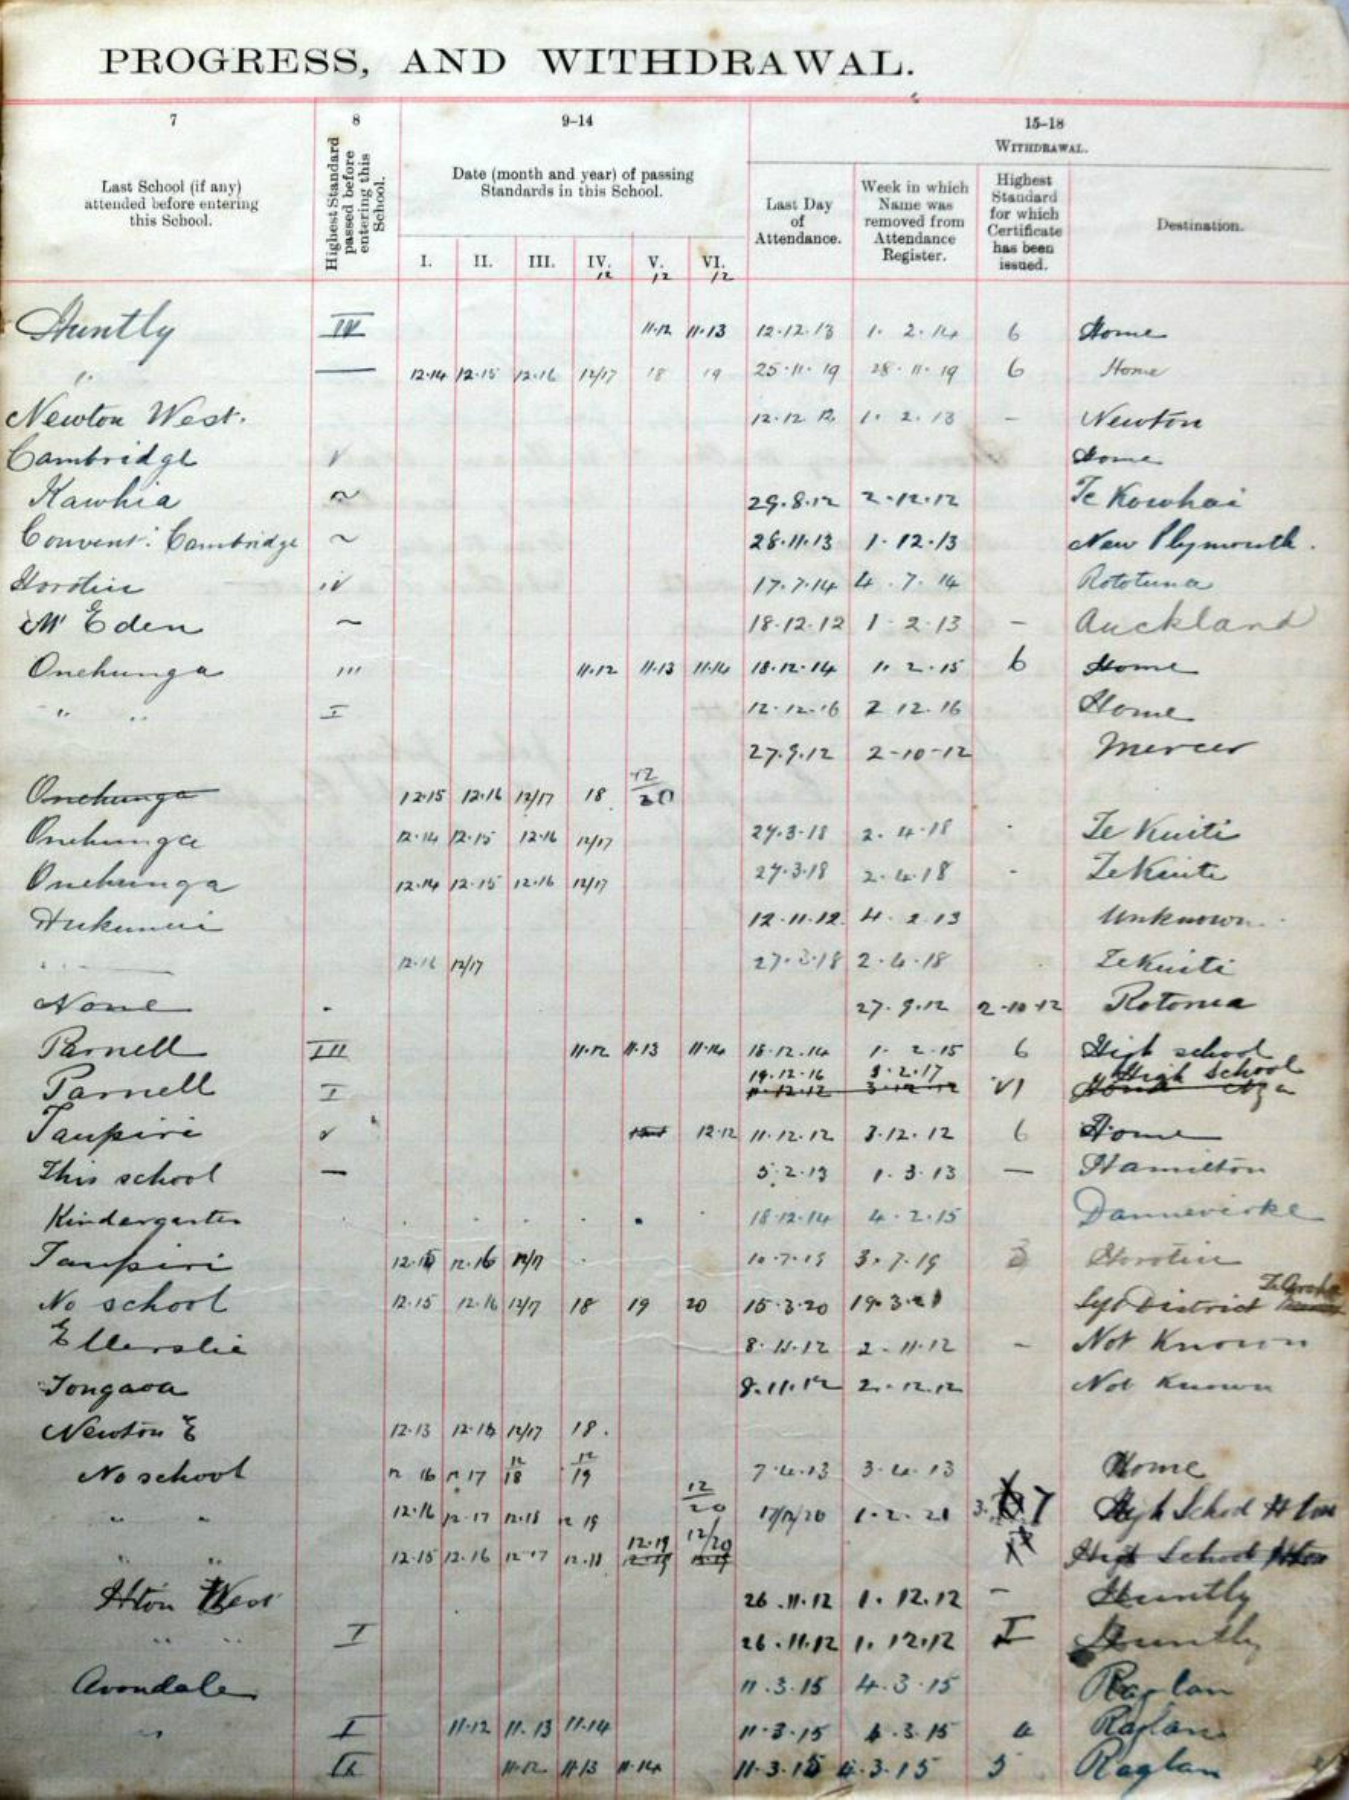 PROGRESS, AND WITHDRAWAL.
7 8 9–14 15–18
WITHDRAWAL.
Last School (if any) attended before entering this School.
Highest Standard passed before entering this School.
Date (month and year) of passing Standards in this School.
Last Day of Attendance.
Week in which Name was removed from Attendance Register.
Highest Standard for which Certificate has been issued.
Destination.
I. II. III. IV. V. VI.
12 12 12
Huntly IV 11.12 11.13 12.12.13 1. 2.14 6 Home
" — 12.14 12.15 12.16 12/17 18 19 25.11.19 28.11.19 6 Home
Newton West. 12.12.12 1. 2.13 – Newton
Cambridge V Home
Kawhia ~ 29.8.12 2.12.12 Te Kowhai
Convent. Cambridge ~ 28.11.13 1.12.13 New Plymouth.
Horotiu iv 17.7.14 4.7.14 Rototuna
Mt Eden ~ 18.12.12 1.2.13 – Auckland
Onehunga ''' 11.12 11.13 11.14 18.12.14 1.2.15 6 Home
" " I 12.12.16 2 12.16 Home
27.9.12 2-10-12 Mercer
Onehunga 12.15 12.16 12/17 18 12/20
Onehunga 12.14 12.15 12.16 12/17 27.3.18 2.4.18 . Te Kuiti
Onehunga 12.14 12.15 12.16 12/17 27.3.18 2.4.18 - Te Kuiti
Hukanui 12.11.12. 4.2.13 Unknown.
12.16 12/17 27.3.18 2.4.18 . Te Kuiti
None - 27.9.12 2-10-12 Rotorua
Parnell III 11.12 11.13 11.14 18.12.14 1.2.15 6 High school
19.12.16 3.2.17 High School
Parnell I VI
Taupiri V 12.12 11.12.12 3.12.12 6 Home
This school — 5.2.13 1.3.13 — Hamilton
Kindergarten 18.12.14 4.2.15 Dannevirke
Taupiri 12.15 12.16 12/17 10.7.19 3.7.19 3 Horotiu
No school 12.15 12.16 12/17 18 19 20 15.3.20 19.3.21 Left District Te Aroha
Ellerslie 8.11.12 2.11.12 – Not Known
Tongaoa 8.11.12 2.12.12 Not Known
Newton E 12.13 12.16 12/17 18.
No school 12 16 12 17 12/18 12/19 7.4.13 3.4.13 Home
" " 12.16 12.17 12.18 12 19 12/20 17/12/20 1.2.21 7 High School H'ton
" " 12.15 12.16 12.17 12.18 12.19 12/20 High School H'ton
H'ton West 26.11.12 1.12.12 – Huntly
" " I 26.11.12 1.12.12 I Huntly
Avondale 11.3.15 4.3.15 Raglan
" I 11.12 11.13 11.14 11.3.15 4.3.15 4 Raglan
II 11.12 11.13 11.14 11.3.15 4.3.15 5 Raglan